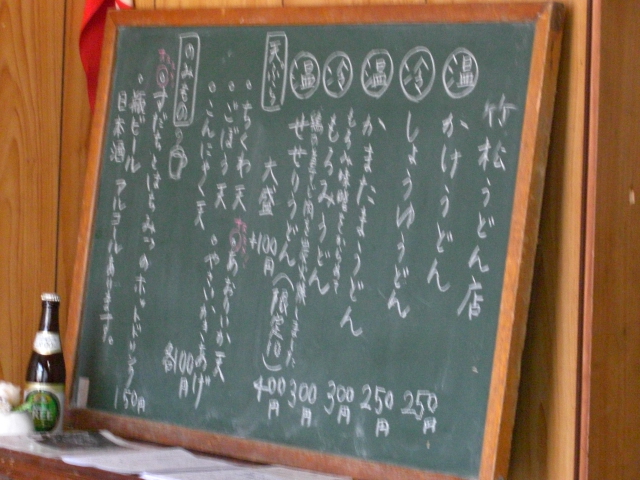 竹松うどん店
温 かけうどん 250円
冷 しょうゆうどん 250円
温 かまたまうどん 300円
冷 もろみうどん 300円
温 せせりうどん(限定10) 400円
大盛 +100円
天ぷら
ちくわ天
ごぼう天
こんにゃく天
あおりいか天
やさいかきあげ
各100円
のみもの
すだちとはちみつのホットドリンク 150円
瓶ビール
日本酒 アルコールあります。